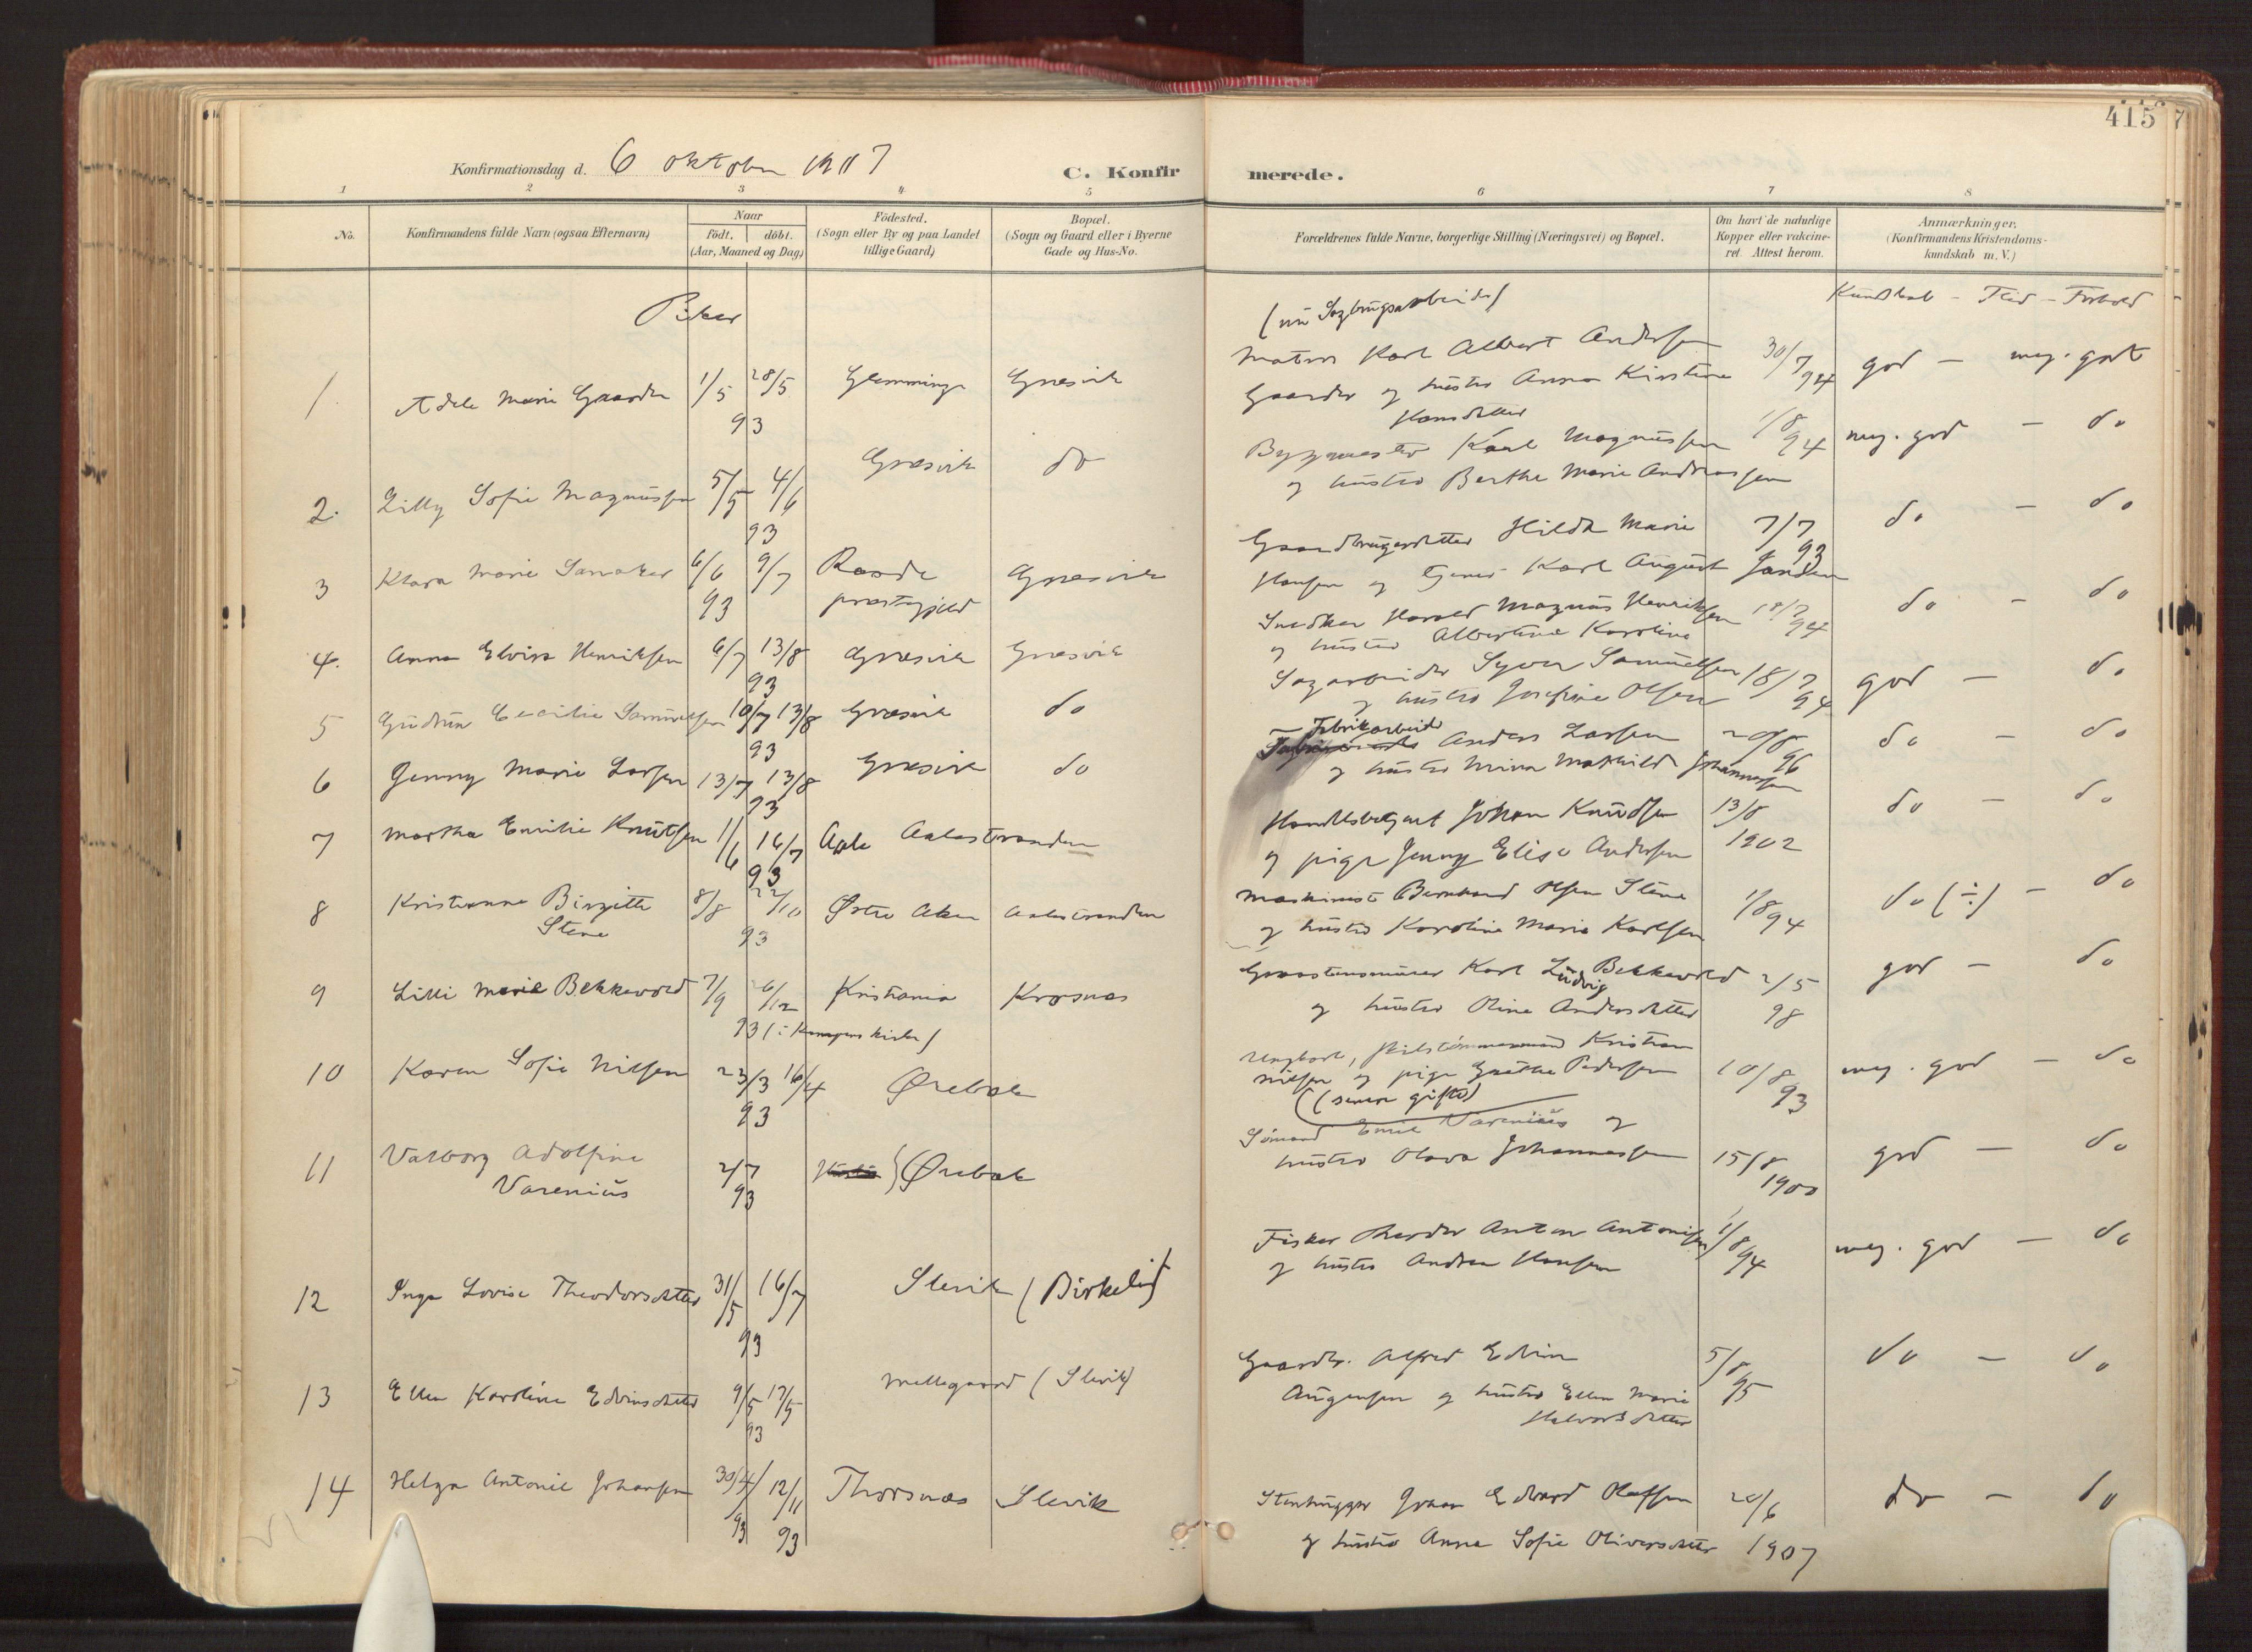 415
Konfirmationsdag d. 6 oktober 1907
C. Konfirmerede.
1 2 3 4 5 6 7 8
No.
Konfirmandens fulde Navn (ogsaa Efternavn)
Naar
födt. döbt.
(Aar, Maaned og Dag)
Födested.
(Sogn eller By og paa Landet
tillige Gaard)
Bopæl.
(Sogn og Gaard eller i Byerne
Gade og Hus-No.
Forældrenes fulde Navne, borgerlige Stilling (Næringsvei) og Bopæl.
Om havt de naturlige
Kopper eller vakcine-
ret Attest herom.
Anmærkninger.
(Konfirmandens Kristendoms-
kundskab m. V.)
Piker
Kundskab - Flid - Forhold
(nu Sagbrugsarbeider)
1 Adele Marie Gaarder 1/5 28/5 93 Glemminge Græsvik
Matros Karl Albert Andersen 30/7 94 god - meg. godt
Gaarder og hustru Anna Kirstine
Hansdatter
2. Lilly Sofie Magnussen 5/5 4/6 93 Græsvik do
Byggmester Karl Magnussen 1/8 94 meg. god - do
og hustru Berthe Marie Andreassen
3 Klara Marie Sanaker 6/6 9/7 93 Raade
præstegjeld Græsvik
Gaardbrugerdatter Hilda Marie 7/7 93 do - do
Hansen og Karl August Jansen
4. Anna Elvira Henriksen 6/7 13/8 93 Græsvik Græsvik
Snedker Harald Magnus Henriksen 18/7 94 do - do
og hustru Albertine Karoline
5 Gudrun Cecilie Samuelsen 10/7 13/8 93 Græsvik do
Sagarbeider Syver Samuelsen 18/7 94 god - do
og hustru Josefine Olsen
6 Jenny Marie Larsen 13/7 13/8 93 Græsvik do
Fabrikarbeider
Anders Larsen 20/8 96 do - do
og hustru Mina Mathilde Johannessen
7 Martha Emilie Knutsen 11/6 16/7 93 Aale Aalestranden
Handelsbetjent Johan Knudsen 13/8 1902 do - do
og pige Jenny Elise Andersen
8 Kristianna Birgitte
Stene 8/8 22/10 93 Østre Aker Aalestranden
Maskinist Bernhard Olsen Stene 1/8 94 do (÷) - do
og hustru Karoline Marie Karlsen
9 Lilli Marie Bekkevold 7/9 26/12 93 Kristiania Kraasnæs
(: Kampens kirke)
Graastensmurer Karl Ludvig Bekkevold 2/5 98 god - do
og hustru Oline Andersdatter
10 Karen Sofie Nilsen 23/3 16/4 93 Ørebæk
Ungkarl, Kristian
Nilsen og pige Grethe Pedersen 10/8 93 meg. god - do
(senere gifte)
11 Valborg Adolfine
Varenius 2/7 93 Ørebæk
Sömand Emil Varenius og
hustru Olava Johannessen 15/8 1900 god - do
12 Inga Lovise Theodorsdatter 31/5 16/7 93 Slevik (Birkelid)
Fisker Theodor Anton Antonisen 1/8 94 meg. god - do
og hustru Andrea Hansen
13 Ellen Karoline Edvinsdatter 9/5 17/5 93 Mellegaard (Slevik)
Gaardbr. Alfred Edvin 5/8 95 do - do
Augensen og hustru Ellen Marie
Halvorsdatter
14 Helga Antonie Johansen 30/4 93 12/11 93 Thorsnæs Slevik
Stenhugger Johan Edvard Olafsen 20/6 1907 do - do
og hustru Anna Sofie Oliversdatter